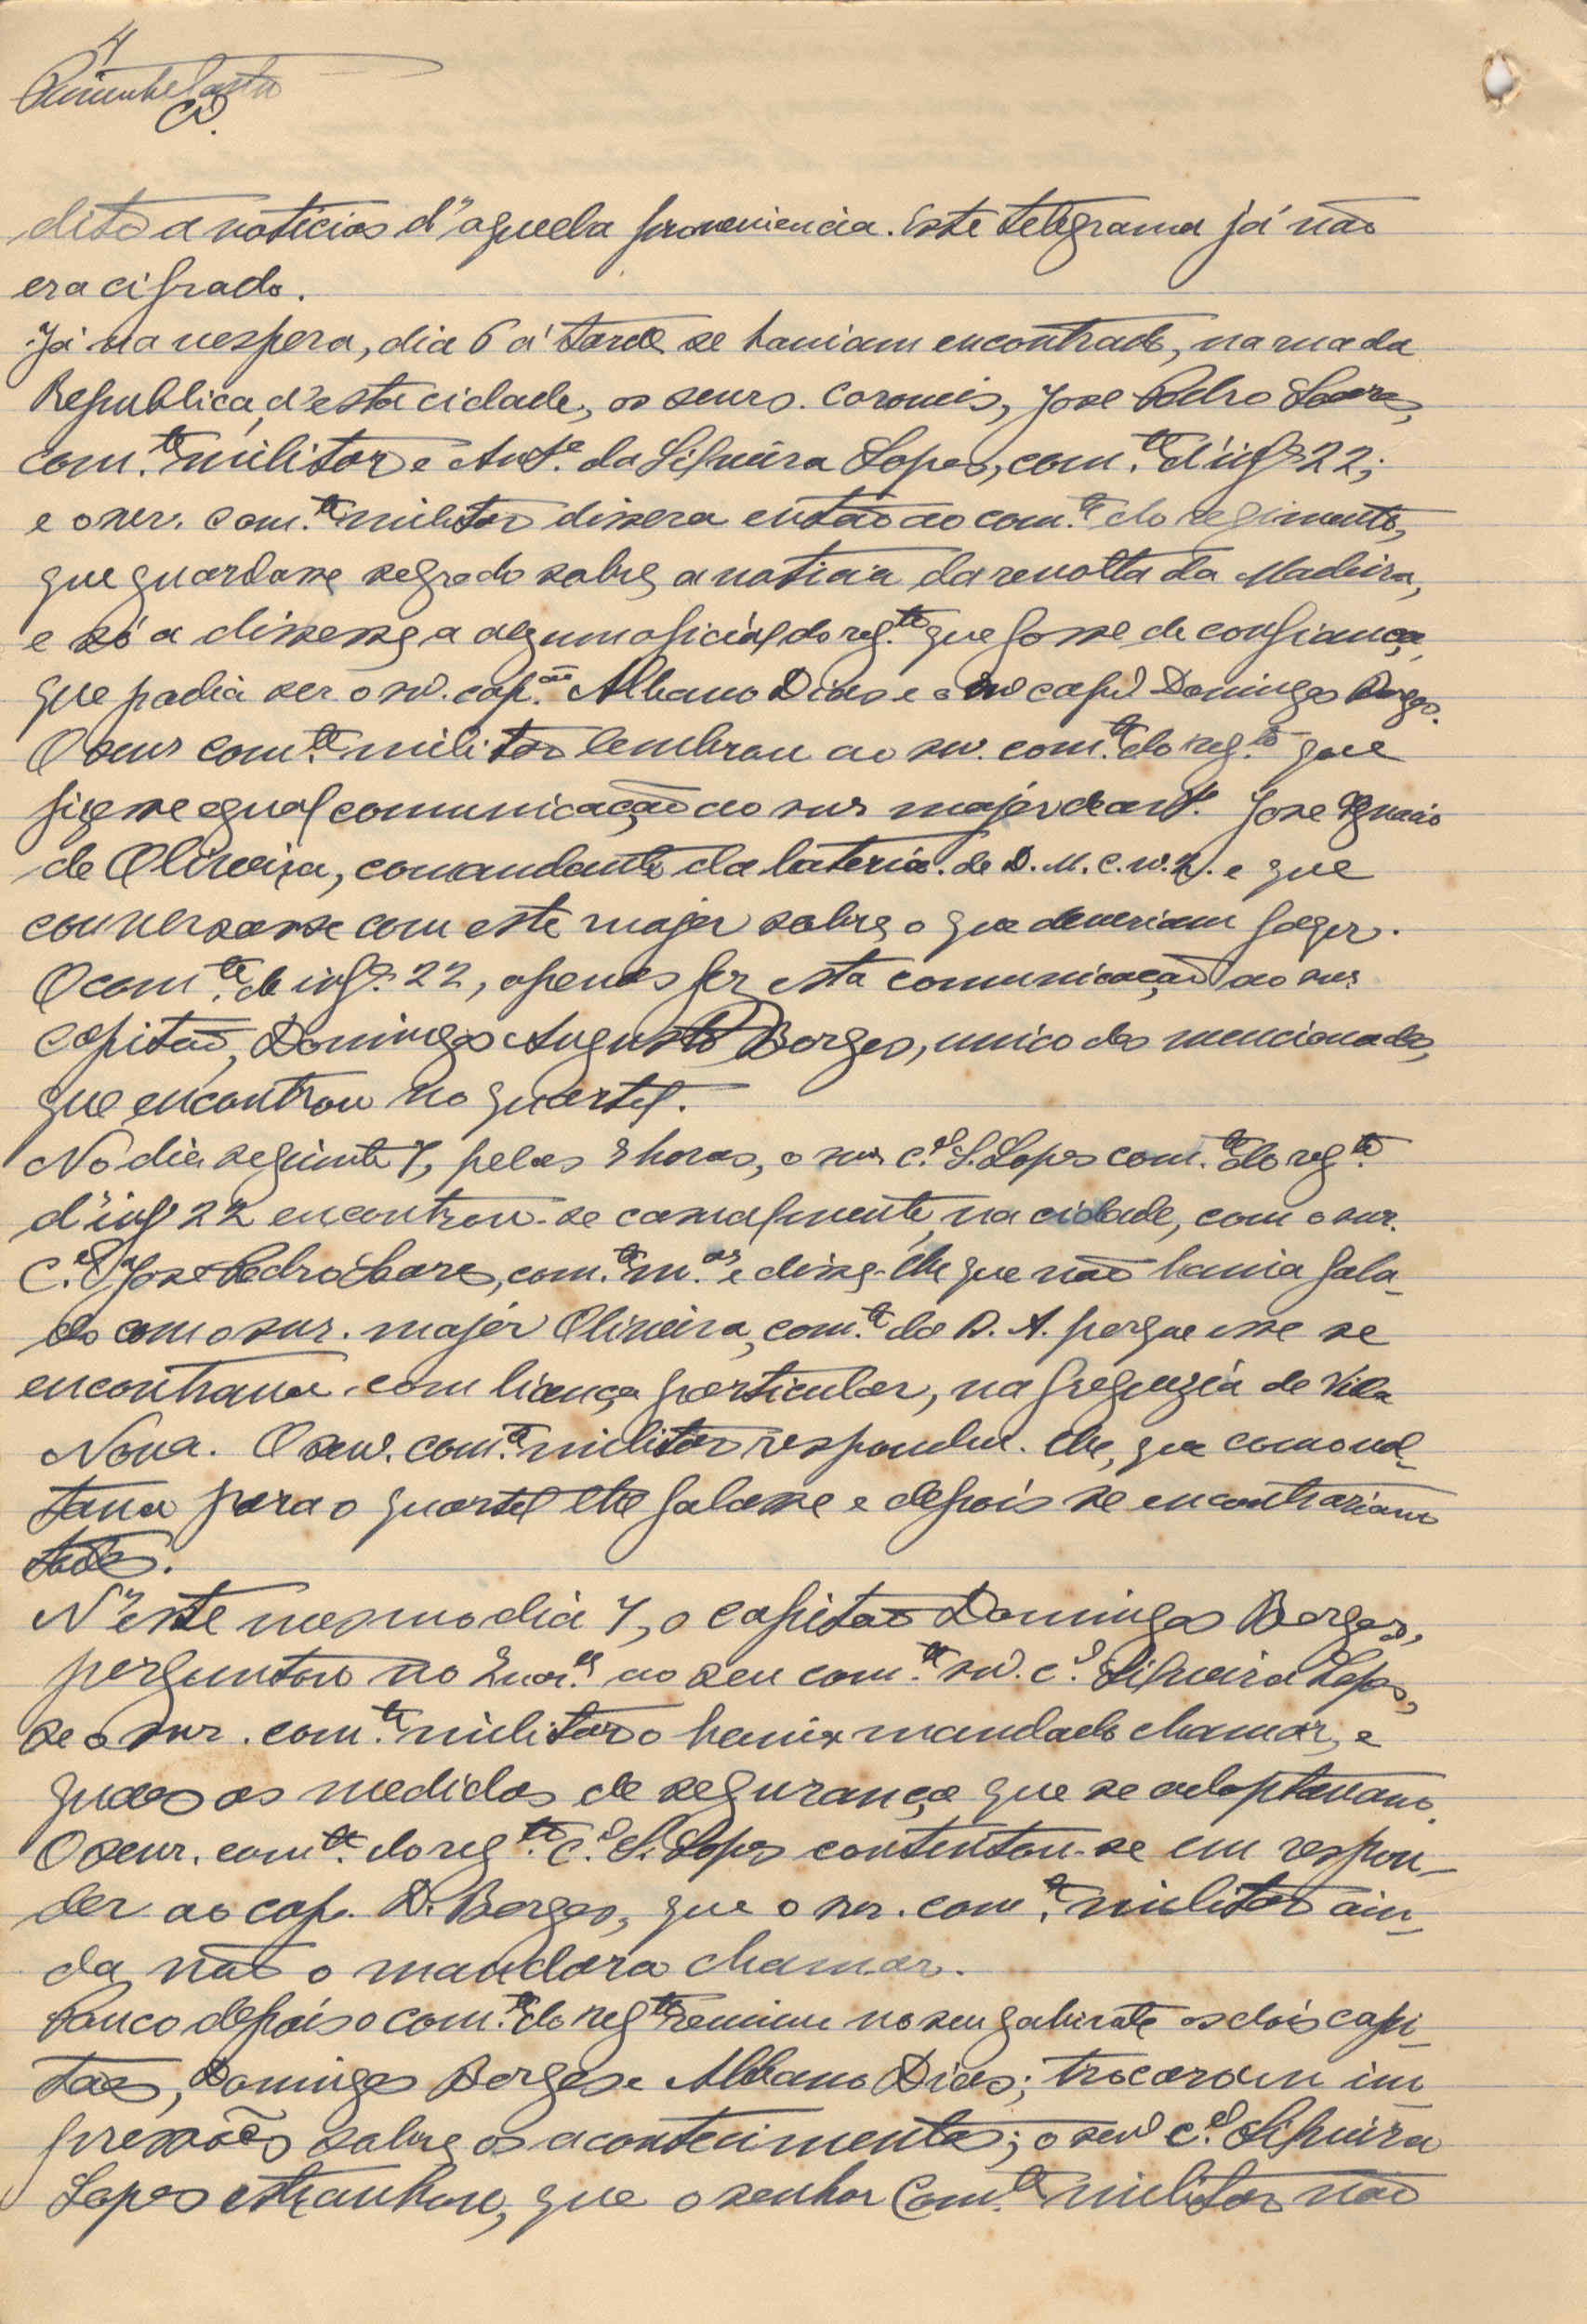 4
dito a noticias d'aquela proveniencia. Este telegrama já não
era cifrado.
Já na vespera, dia 6 á tarde se haviam encontrado, na rua da
Republica, d'esta cidade, os snrs. coroneis, Jose Pedro Soares,
com.te militar e Ant.º da Silveira Lopes, com.te d'inf.ª 22;
e o snr. com.te militar dissera então ao com.te do regimento,
que guardasse segredo sobre a noticia da revolta da Madeira,
e só a dissesse a algum oficial do reg.to que fosse de confiança,
que podia ser o snr. cap.ão Albano Dias e o snr cap. Domingos Borges.
O snr com.te militar lembrou ao snr. com.te do reg.to que
fizesse egual comunicação ao snr major de art.ª Jose Ignacio
de Oliveira, comandante da bateria de D. M. C. n.º 2. e que
conversasse com este major sobre o que deveriam fazer.
O com.te de inf.ª 22, apenas fez esta comunicação ao snr
capitão, Domingos Augusto Borges, unico dos mencionados,
que encontrou no quartel.
No dia seguinte 7, pelas 9 horas, o snr c.el S. Lopes com.te do reg.to
d'inf.ª 22 encontrou-se casualmente, na cidade, com o snr.
C.el Jose Pedro Soares, com.te m.ar e disse-lhe que não havia fala-
do com o snr. major Oliveira, com.te da D. A. porque esse se
encontrava, com licença particular, na freguezia de Villa
Nova. O snr. com.te militar respondeu-lhe, que como vol-
tava para o quartel lhe falasse e depois se encontrariam
todos.
N'este mesmo dia 7, o capitão Domingos Borges,
perguntou no Quar.el ao seu com.te snr. c.el Silveira Lopes,
se o snr. com.te militar o havia mandado chamar, e
quaes as medidas de segurança que se adoptavam.
O snr. com.te do reg.to c.el S. Lopes contentou-se em respon-
der ao cap. D. Borges, que o snr. com.te militar ain-
da não o mandara chamar.
Pouco depois o com.te do reg.to reuniu no seu gabinete os dois capi-
tães, Domingos Borges e Albano Dias; trocaram im-
pressões sobre os acontecimentos; o snr c.el Silveira
Lopes estranhou, que o senhor Com.te militar não